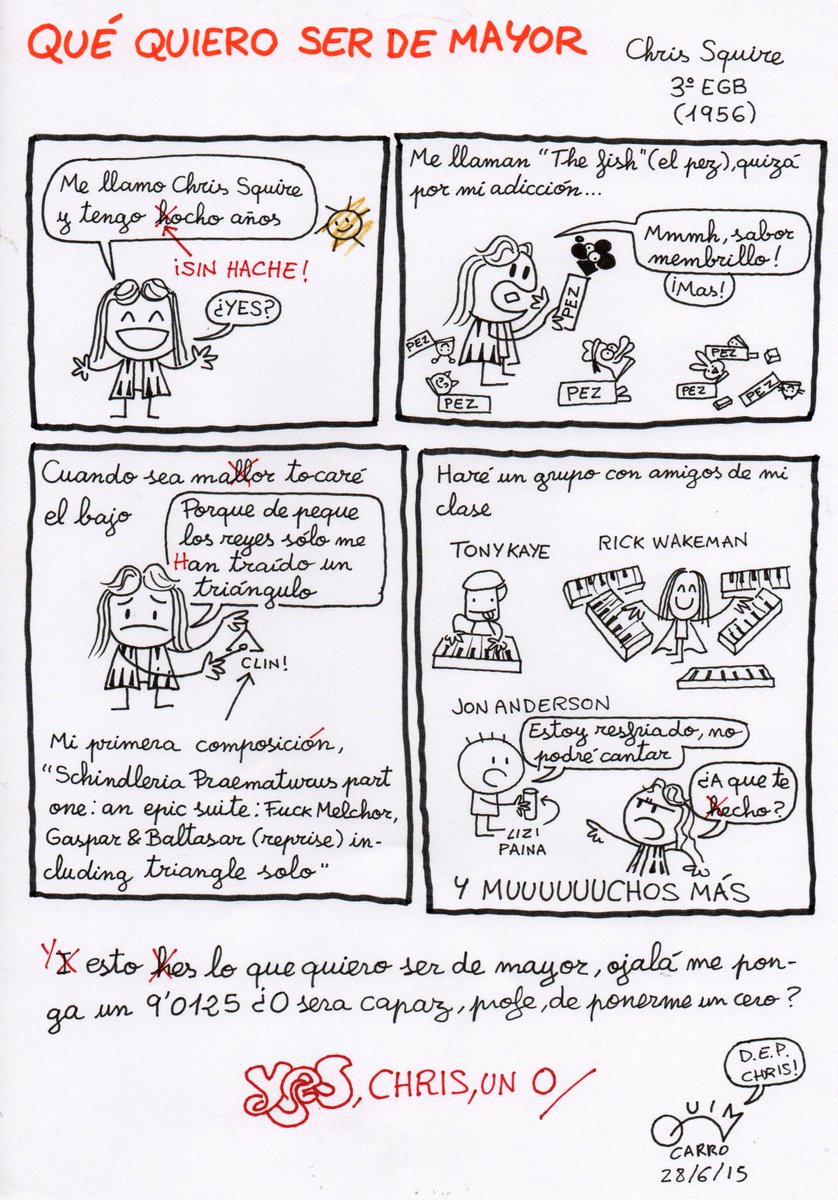 QUÉ QUIERO SER DE MAYOR
Chris Squire
3º EGB
(1956)
Me llamo Chris Squire
y tengo hocho años
¡SIN HACHE!
¿YES?
Me llaman "The fish" (el pez), quizá
por mi adicción...
Mmmh, sabor
membrillo!
¡Mas!
PEZ
PEZ
PEZ
PEZ
PEZ
PEZ
PEZ
Cuando sea mallor tocaré
el bajo
Porque de peque
los reyes sólo me
Han traído un
triángulo
CLIN!
Mi primera composición,
"Schindleria Praematurus part
one: an epic suite: Fuck Melchor,
Gaspar & Baltasar (reprise) in-
cluding triangle solo"
Haré un grupo con amigos de mi
clase
TONY KAYE
RICK WAKEMAN
JON ANDERSON
Estoy resfriado, no
podré cantar
LIZI
PAINA
¿A que te
hecho?
Y MUUUUUUCHOS MÁS
Y I esto hes lo que quiero ser de mayor, ojalá me pon-
ga un 9'0125 ¿O sera capaz, profe, de ponerme un cero?
YES, CHRIS, UN 0
D.E.P.
CHRIS!
QUIM
CARRO
28/6/15